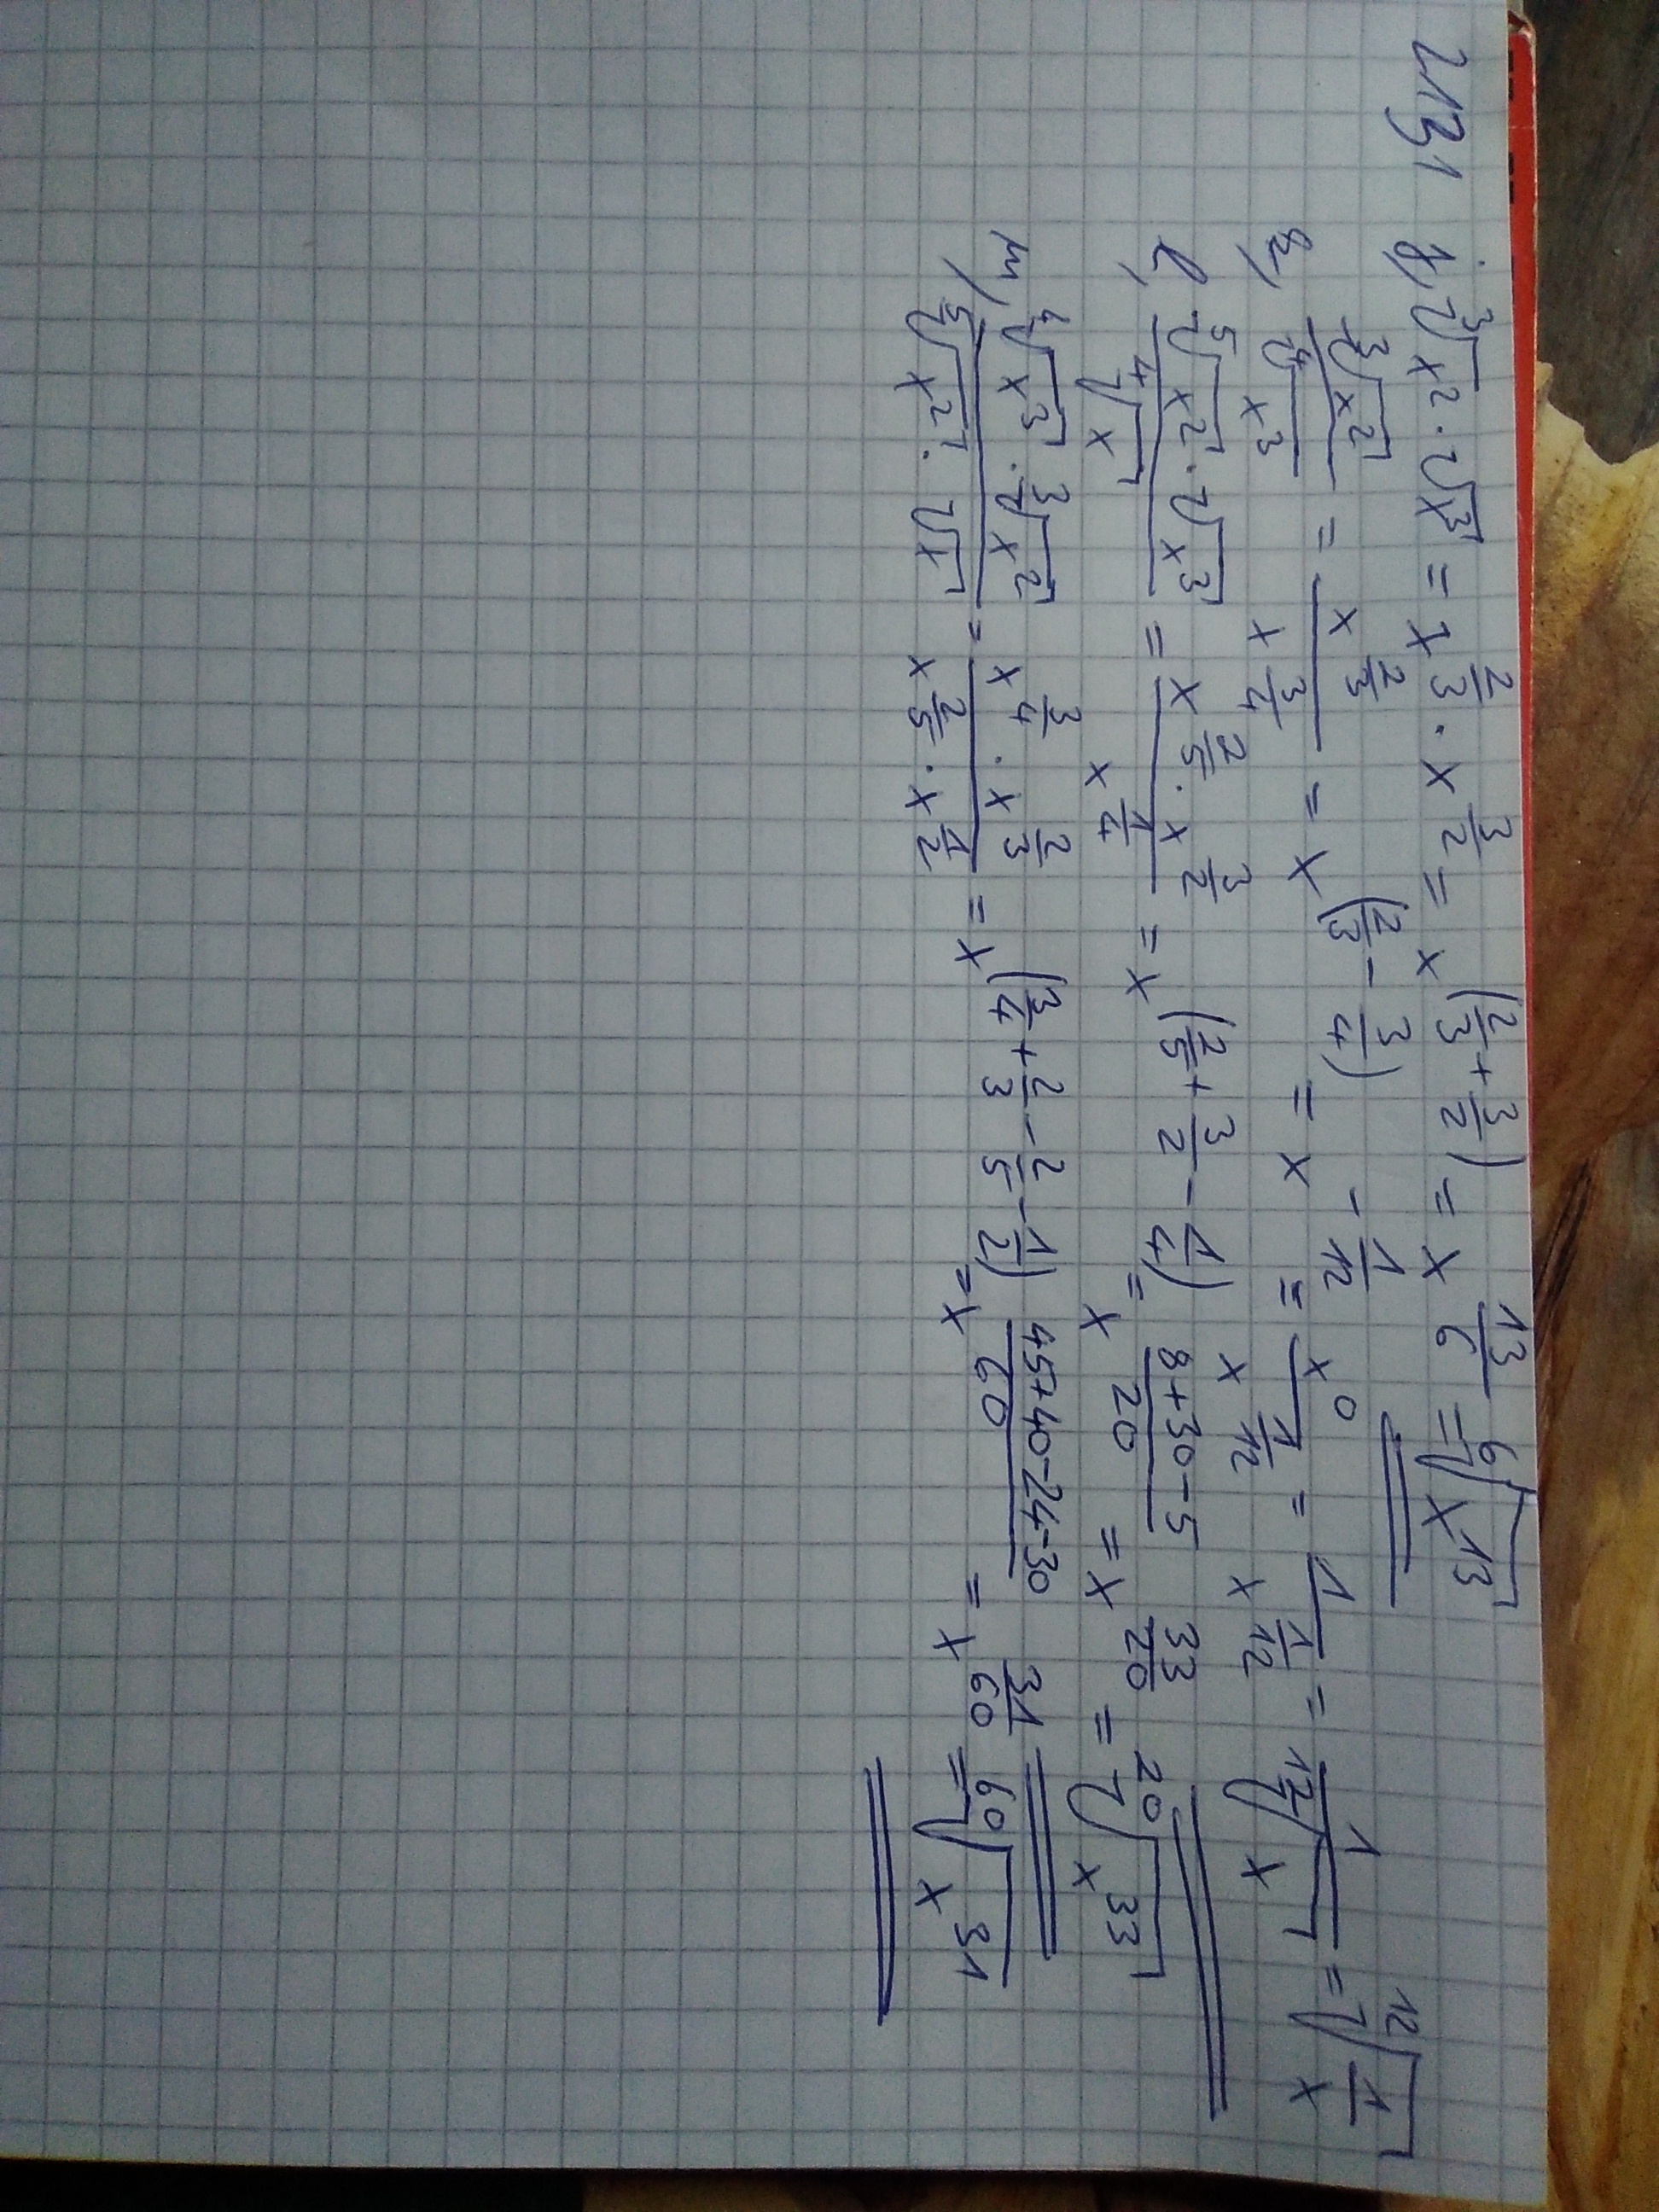 2131 j, ∛x² · √x³ = x^(2/3) · x^(3/2) = x^(2/3 + 3/2) = x^(13/6) = ⁶√x¹³
k, ∛x² / ⁴√x³ = x^(2/3) / x^(3/4) = x^(2/3 - 3/4) = x^(-1/12) = x⁰ / x^(1/12) = 1 / x^(1/12) = 1 / ¹²√x = ¹²√(1/x)
l, ⁵√x² · √x³ / ⁴√x = x^(2/5) · x^(3/2) / x^(1/4) = x^(2/5 + 3/2 - 1/4) = x^((8+30-5)/20) = x^(33/20) = ²⁰√x³³
m, ⁴√x³ · ∛x² / ⁵√x² · √x = x^(3/4) · x^(2/3) / x^(2/5) · x^(1/2) = x^(3/4 + 2/3 - 2/5 - 1/2) = x^((45+40-24-30)/60) = x^(31/60) = ⁶⁰√x³¹